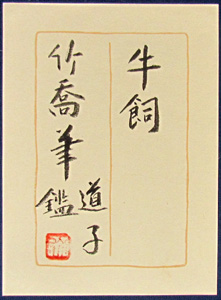 牛飼
竹喬筆
道子鑑